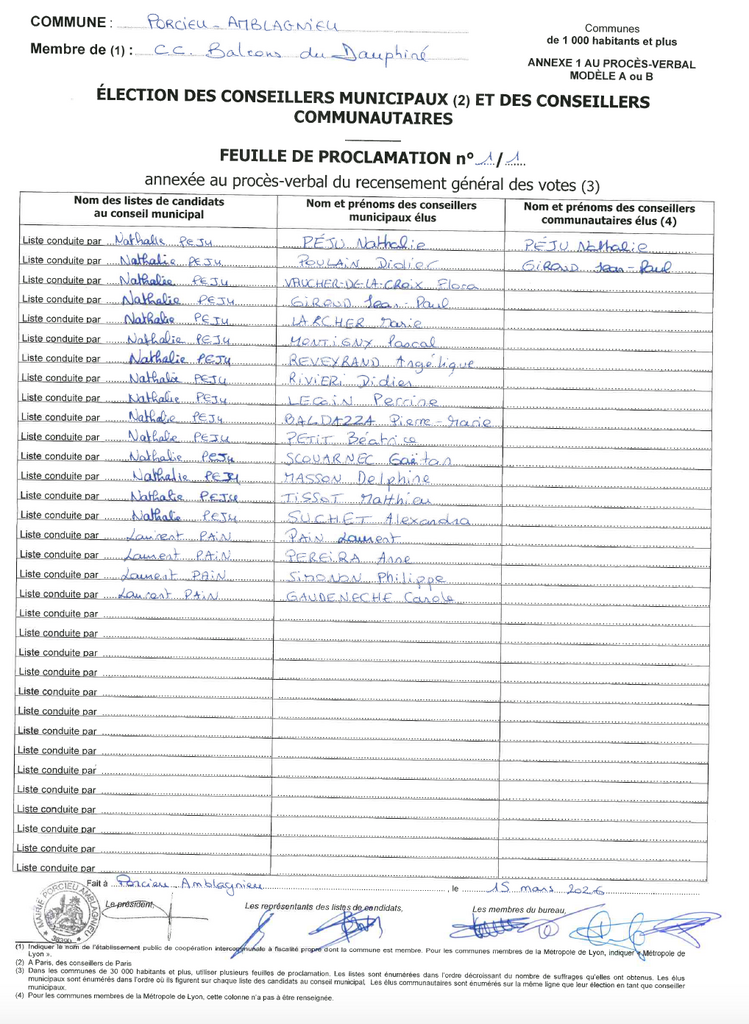 COMMUNE : PORCIEU-AMBLAGNIEU
Membre de (1) : C.C. Balcons du Dauphiné
Communes
de 1 000 habitants et plus
ANNEXE 1 AU PROCÈS-VERBAL
MODÈLE A ou B
ÉLECTION DES CONSEILLERS MUNICIPAUX (2) ET DES CONSEILLERS
COMMUNAUTAIRES
FEUILLE DE PROCLAMATION n° 1/1
annexée au procès-verbal du recensement général des votes (3)
Nom des listes de candidats au conseil municipal | Nom et prénoms des conseillers municipaux élus | Nom et prénoms des conseillers communautaires élus (4)
Liste conduite par Nathalie PEJU PÉJU Nathalie PÉJU Nathalie
Liste conduite par Nathalie PEJU POULAIN Didier GIROUD Jean-Paul
Liste conduite par Nathalie PEJU VAUCHER-DE-LA-CROIX Flora
Liste conduite par Nathalie PEJU GIROUD Jean-Paul
Liste conduite par Nathalie PEJU LARCHER Marie
Liste conduite par Nathalie PEJU MONTIGNY Pascal
Liste conduite par Nathalie PEJU REVEYRAND Angélique
Liste conduite par Nathalie PEJU RIVIERI Didier
Liste conduite par Nathalie PEJU LEGAIN Perrine
Liste conduite par Nathalie PEJU BALDAZZA Pierre-Marie
Liste conduite par Nathalie PEJU PETIT Béatrice
Liste conduite par Nathalie PEJU SCOUARNEC Gaëtan
Liste conduite par Nathalie PEJU MASSON Delphine
Liste conduite par Nathalie PEJU TISSOT Matthieu
Liste conduite par Nathalie PEJU SUCHET Alexandra
Liste conduite par Laurent PAIN PAIN Laurent
Liste conduite par Laurent PAIN PEREIRA Anne
Liste conduite par Laurent PAIN SIMONON Philippe
Liste conduite par Laurent PAIN GAUDENECHE Carole
Liste conduite par
Liste conduite par
Liste conduite par
Liste conduite par
Liste conduite par
Liste conduite par
Liste conduite par
Liste conduite par
Liste conduite par
Liste conduite par
Liste conduite par
Liste conduite par
Liste conduite par
Liste conduite par
Fait à Porcieu Amblagnieu, le 15 mars 2026
Le président, Les représentants des listes de candidats, Les membres du bureau,
MAIRIE PORCIEU AMBLAGNIEU
38390
(1) Indiquer le nom de l'établissement public de coopération intercommunale à fiscalité propre dont la commune est membre. Pour les communes membres de la Métropole de Lyon, indiquer « Métropole de
Lyon ».
(2) A Paris, des conseillers de Paris
(3) Dans les communes de 30 000 habitants et plus, utiliser plusieurs feuilles de proclamation. Les listes sont énumérées dans l'ordre décroissant du nombre de suffrages qu'elles ont obtenus. Les élus
municipaux sont énumérés dans l'ordre où ils figurent sur chaque liste des candidats au conseil municipal. Les élus communautaires sont énumérés sur la même ligne que leur élection en tant que conseiller
municipaux.
(4) Pour les communes membres de la Métropole de Lyon, cette colonne n'a pas à être renseignée.